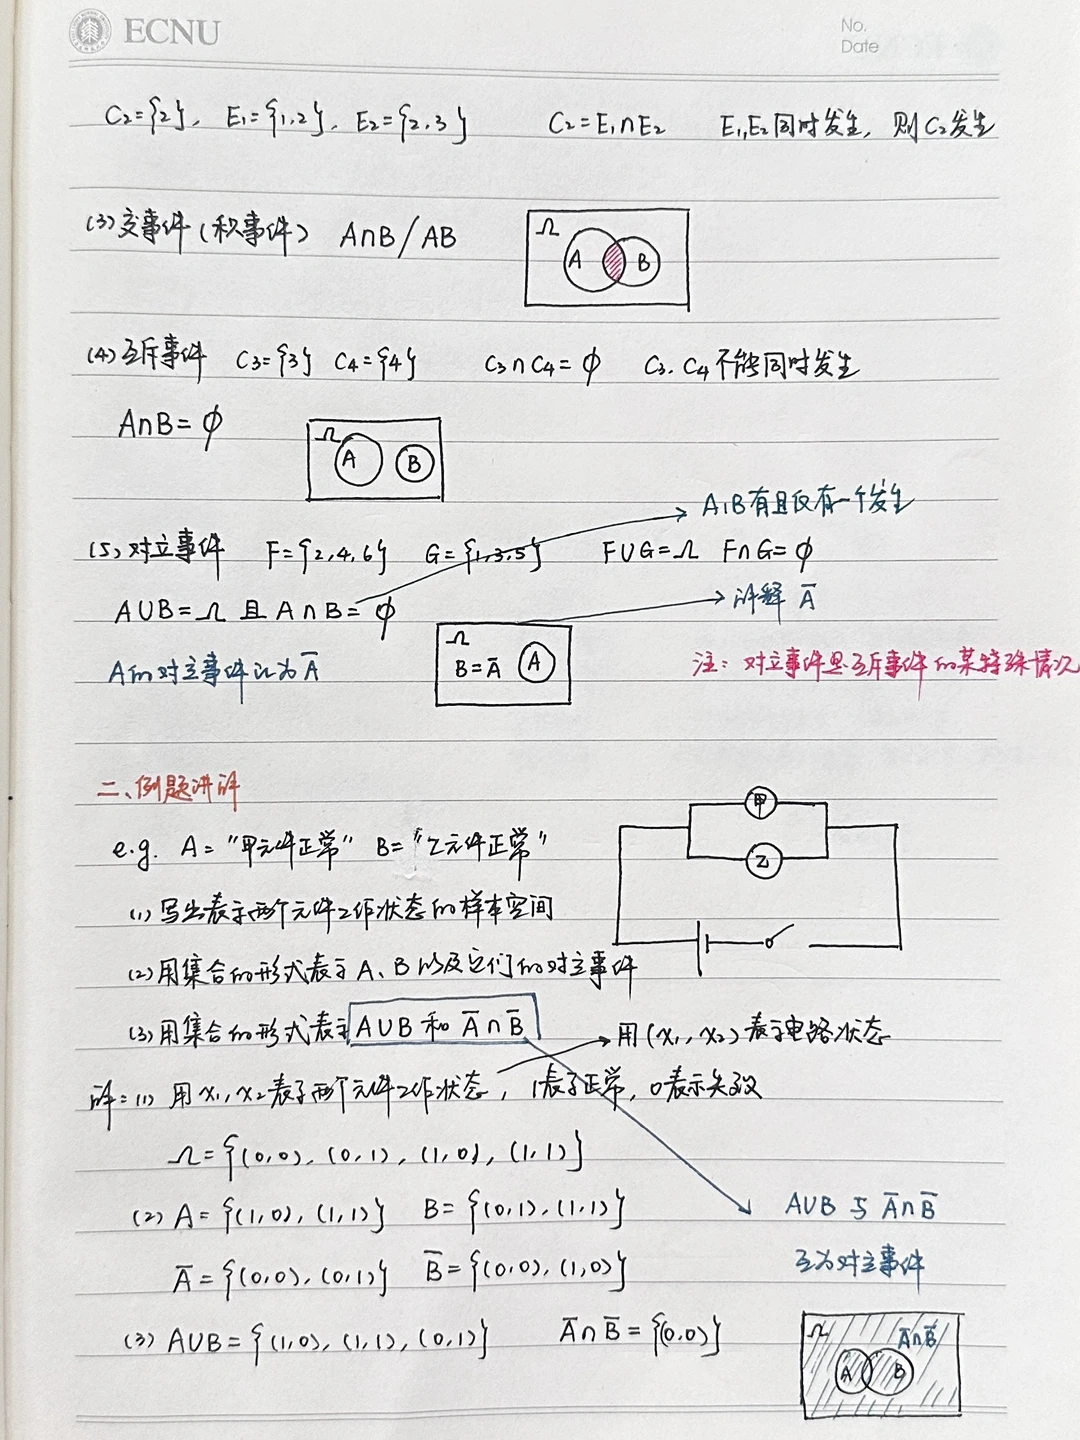 ECNU
No.
Date
C₂={2}, E₁={1,2}, E₂={2,3} C₂=E₁∩E₂ E₁,E₂同时发生, 则C₂发生
(3) 交事件(积事件) A∩B/AB
Ω
A B
(4) 互斥事件 C₃={3} C₄={4} C₃∩C₄=∅ C₃,C₄不能同时发生
A∩B=∅
Ω
A B
A,B有且仅有一个发生
(5) 对立事件 F={2,4,6} G={1,3,5} F∪G=Ω F∩G=∅
A∪B=Ω 且 A∩B=∅
讲解 Ā
Ω
B=Ā A
A的对立事件记为Ā
注: 对立事件是互斥事件的某特殊情况
二、例题讲评
甲
e.g. A="甲元件正常" B="乙元件正常"
乙
(1) 写出表示两个元件工作状态的样本空间
(2) 用集合的形式表示A、B以及它们的对立事件
(3) 用集合的形式表示 A∪B 和 Ā∩B̄
用(x₁,x₂)表示电路状态
解: (1) 用x₁,x₂表示两个元件工作状态, 1表示正常, 0表示失效
Ω={(0,0), (0,1), (1,0), (1,1)}
(2) A={(1,0), (1,1)} B={(0,1), (1,1)}
A∪B 与 Ā∩B̄
互为对立事件
Ā={(0,0), (0,1)} B̄={(0,0), (1,0)}
(3) A∪B={(1,0), (1,1), (0,1)} Ā∩B̄={(0,0)}
Ω Ā∩B̄
A B